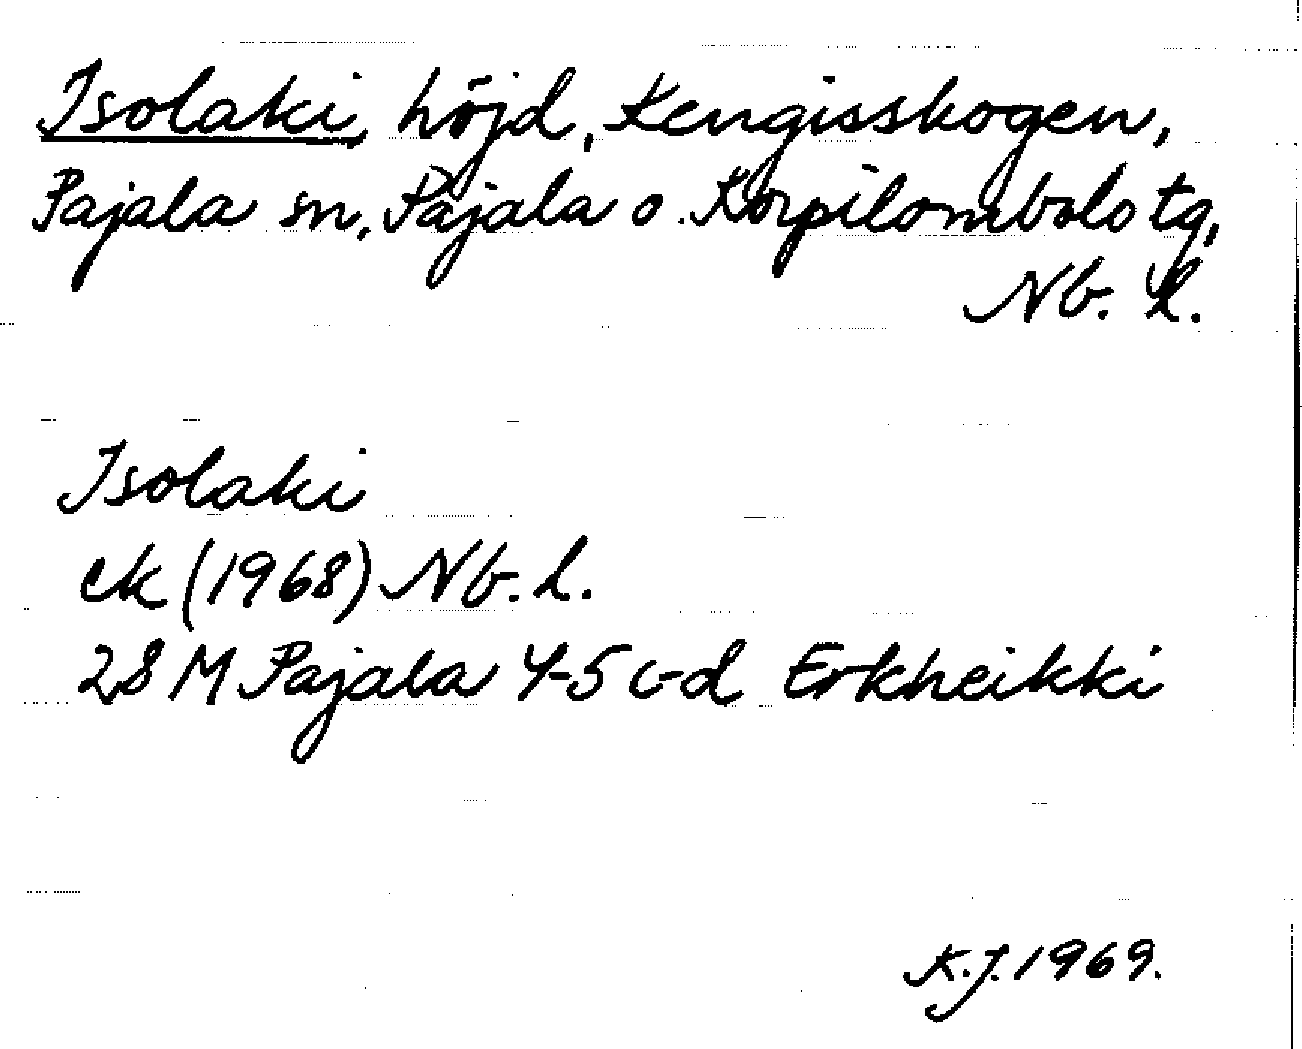 Isolaki, höjd, Kengisskogen,
Pajala sn, Pajala o. Korpilombolo tg,
Nb. l.
Isolaki
ek (1968) Nb. l.
28 M Pajala 4-5 c-d Erkheikki
K.J. 1969.